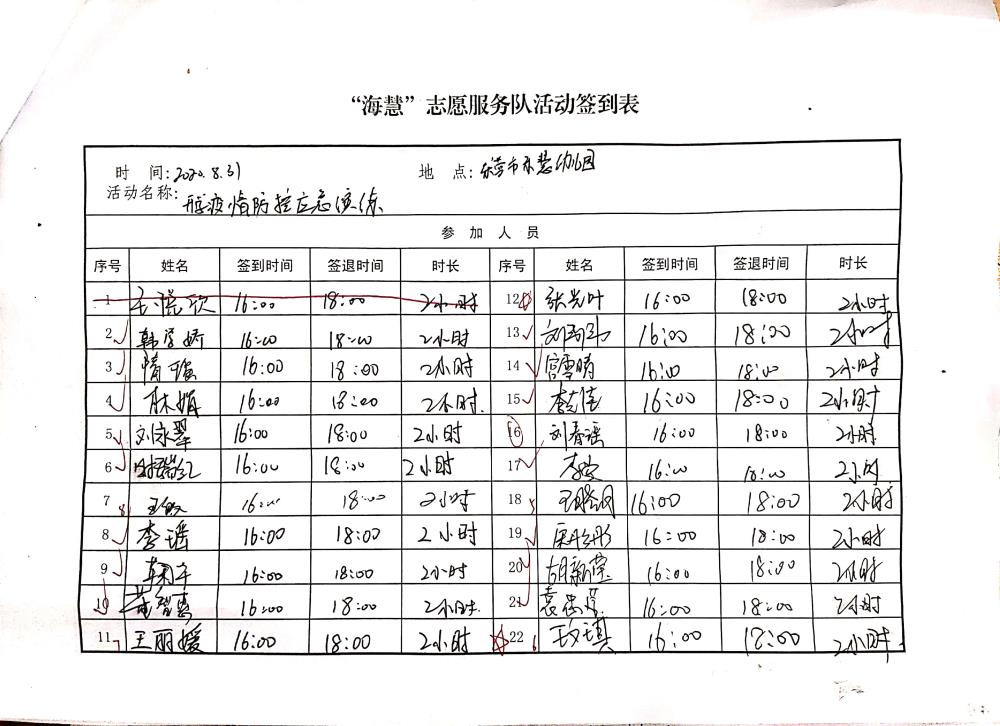 “海慧”志愿服务队活动签到表
时 间:2020.8.31 地 点:东营市永慧幼儿园
活动名称: 疫情防控应急演练
参 加 人 员
序号 姓名 签到时间 签退时间 时长 序号 姓名 签到时间 签退时间 时长
1 16:00 18:00 2小时 12 张光叶 16:00 18:00 2小时
2 韩学娇 16:00 18:00 2小时 13 16:00 18:00 2小时
3 16:00 18:00 2小时 14 宫雪晴 16:00 18:00 2小时
4 16:00 18:00 2小时. 15 16:00 18:00 2小时
5 刘永翠 16:00 18:00 2小时 16 刘春瑶 16:00 18:00 2小时
6 16:00 18:00 2小时 17 16:00 18:00 2小时
7 王敏 16:00 18:00 2小时 18 16:00 18:00 2小时
8 李瑶 16:00 18:00 2小时 19 16:00 18:00 2小时
9 16:00 18:00 2小时 20 胡新莹 16:00 18:00 2小时
10 16:00 18:00 2小时. 21 16:00 18:00 2小时
11 王丽媛 16:00 18:00 2小时 22 16:00 18:00 2小时